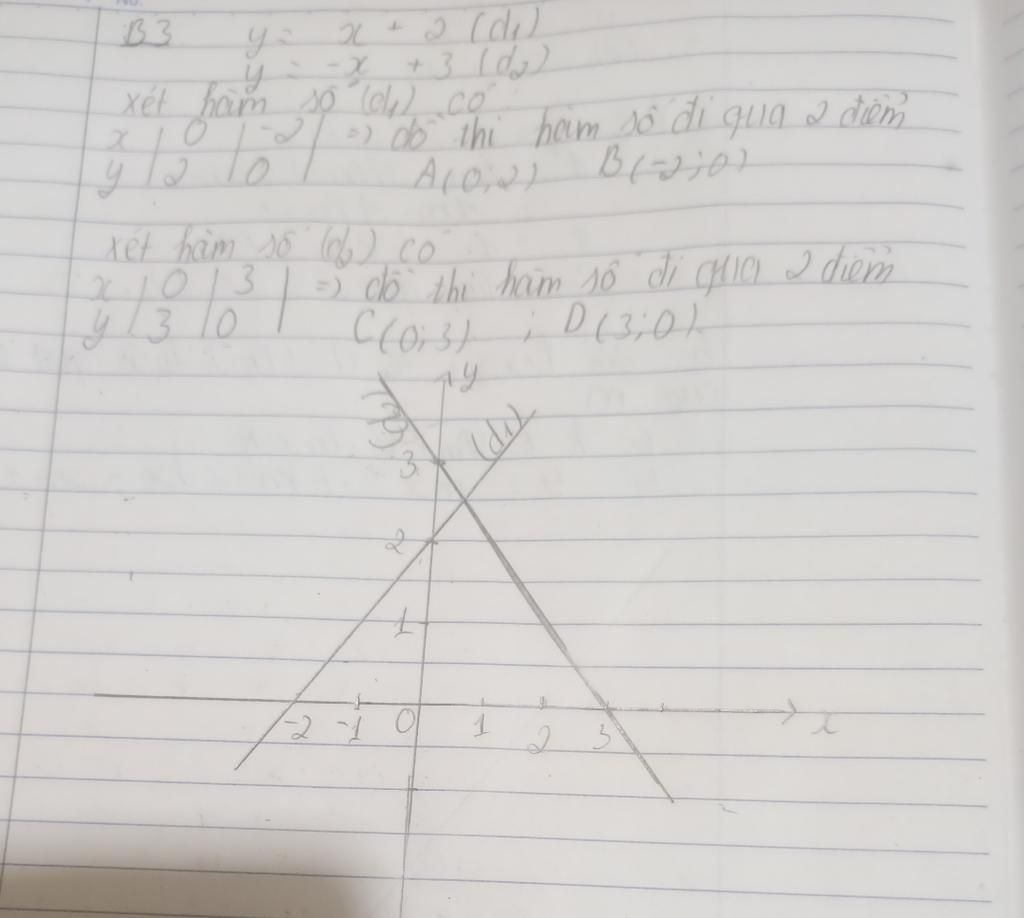 B3 y = x + 2 (d₁)
y = -x + 3 (d₂)
xét hàm số (d₁) có
x | 0 | -2 | => đồ thị hàm số đi qua 2 điểm
y | 2 | 0 | A(0;2) B(-2;0)
xét hàm số (d₂) có
x | 0 | 3 | => đồ thị hàm số đi qua 2 điểm
y | 3 | 0 | C(0;3) ; D(3;0)
y
(d₂) (d₁)
3
2
1
-2 -1 0 1 2 3 x